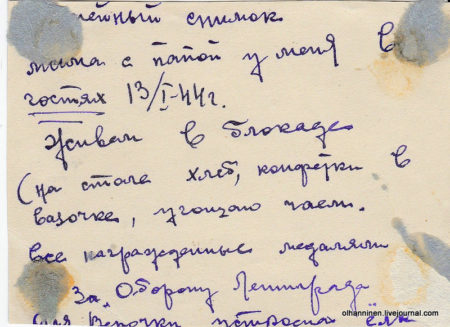 ейный снимок
мама с папой у меня в
гостях 13/I-44г.
Живем в блокаде
(на столе хлеб, конфетки в
вазочке, угощаю чаем.
все награжденные медалями
За „Оборону Ленинграда
для Верочки устроена ёлк
olhanninen.livejournal.com